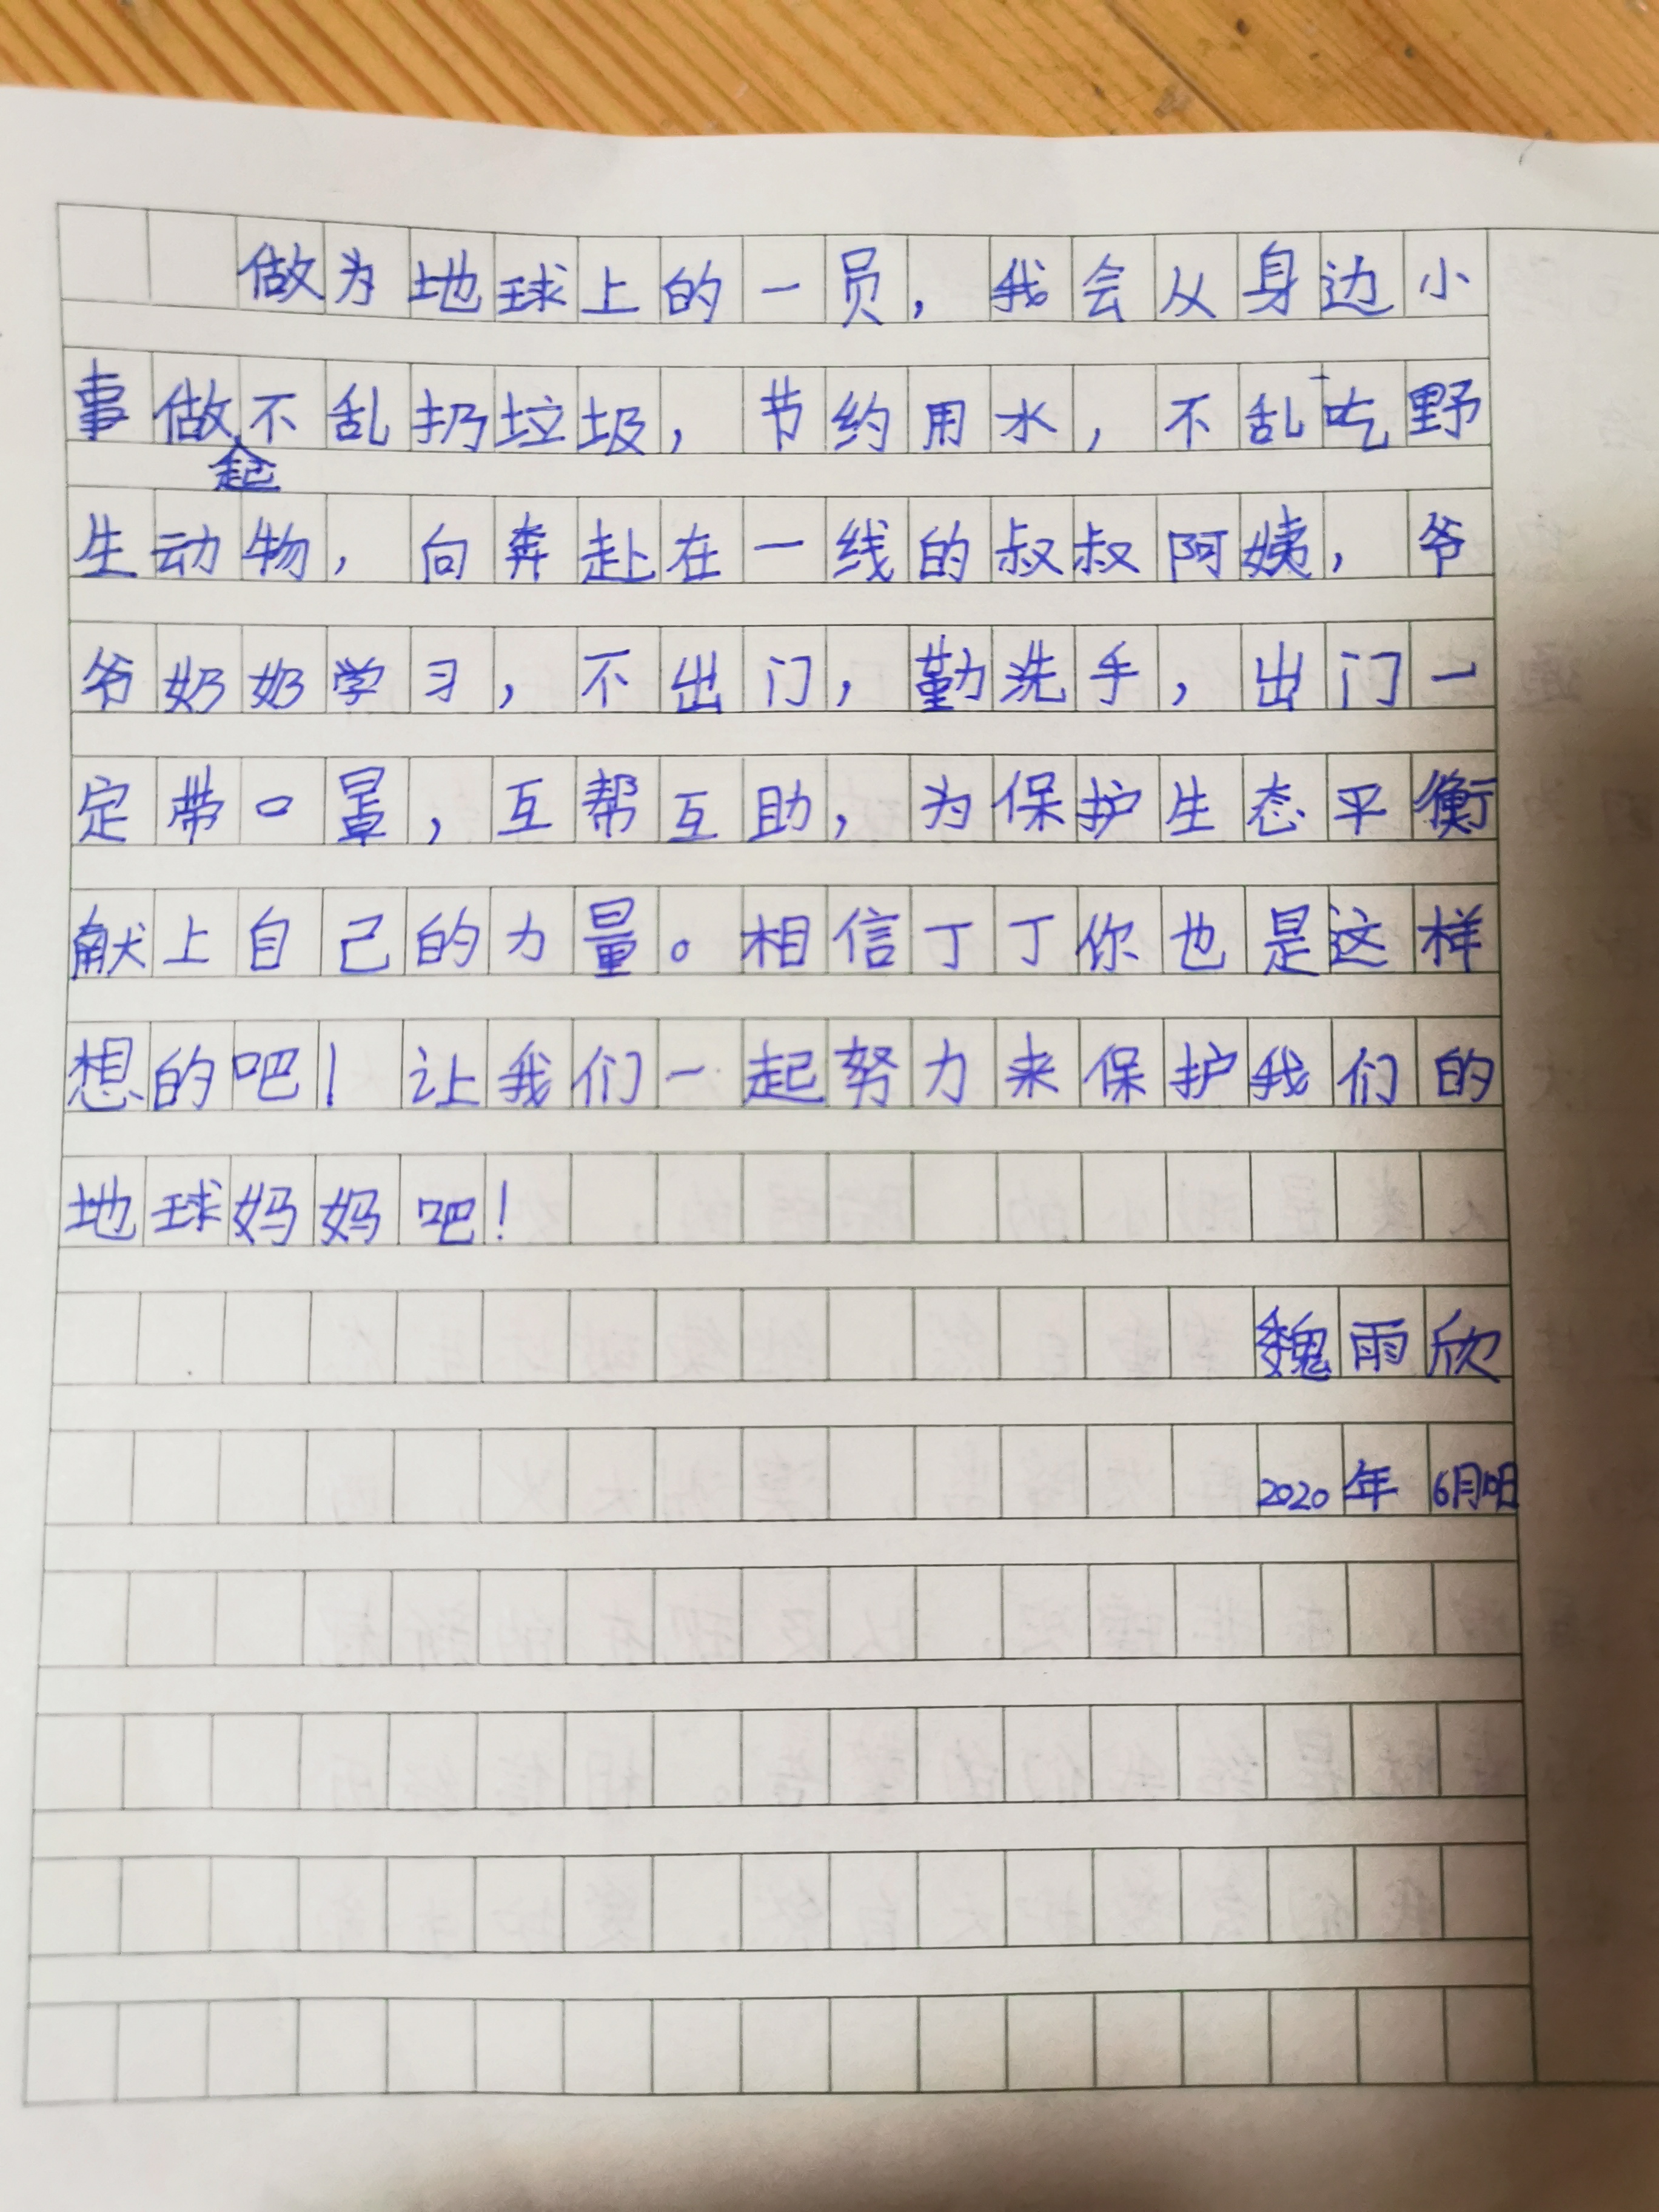 做为地球上的一员，我会从身边小
事做起不乱扔垃圾，节约用水，不乱吃野
生动物，向奔赴在一线的叔叔阿姨，爷
爷奶奶学习，不出门，勤洗手，出门一
定带口罩，互帮互助，为保护生态平衡
献上自己的力量。相信丁丁你也是这样
想的吧！让我们一起努力来保护我们的
地球妈妈吧！
魏雨欣
2020年 6月